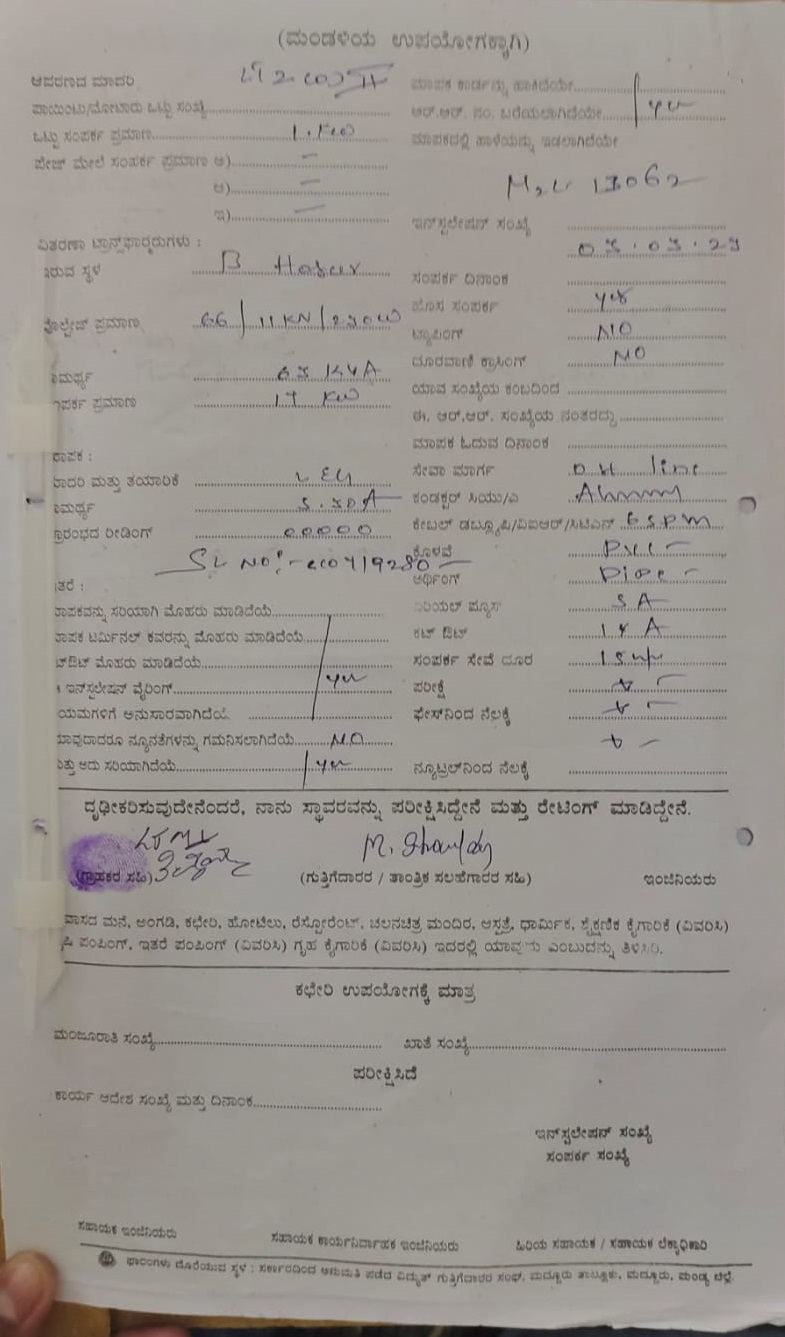 (ಮಂಡಳಿಯ ಉಪಯೋಗಕ್ಕಾಗಿ)
ಆವರಣದ ಮಾದರಿ
ಪಾಯಿಂಟು/ಮೋಟಾರು ಒಟ್ಟು ಸಂಖ್ಯೆ
ಒಟ್ಟು ಸಂಪರ್ಕ ಪ್ರಮಾಣ 1.KW
ಪೇಜ್ ಮೇಲೆ ಸಂಪರ್ಕ ಪ್ರಮಾಣ ಅ) –
ಆ) –
ಇ) –
ವಿತರಣಾ ಟ್ರಾನ್ಸ್‌ಫಾರ್ಮರುಗಳು :
ಇರುವ ಸ್ಥಳ B Hosur
ವೋಲ್ಟೇಜ್ ಪ್ರಮಾಣ 66/11KV/230W
ಾಮರ್ಥ್ಯ 63 KVA
ಂಪರ್ಕ ಪ್ರಮಾಣ 17 KW
ಾಪಕ :
ಾದರಿ ಮತ್ತು ತಯಾರಿಕೆ L&G
ಾಮರ್ಥ್ಯ 5.30A
್ರಾರಂಭದ ರೀಡಿಂಗ್ 00000
SL NO:-
ತರೆ :
ಾಪಕವನ್ನು ಸರಿಯಾಗಿ ಮೊಹರು ಮಾಡಿದೆಯೆ
ಾಪಕ ಟರ್ಮಿನಲ್ ಕವರನ್ನು ಮೊಹರು ಮಾಡಿದೆಯೆ
ಟ್‌ಔಟ್ ಮೊಹರು ಮಾಡಿದೆಯೆ
ಇನ್‌ಸ್ಟಲೇಷನ್ ವೈರಿಂಗ್ yes
ಯಮಗಳಿಗೆ ಅನುಸಾರವಾಗಿದೆಯೆ
ಯಾವುದಾದರೂ ನ್ಯೂನತೆಗಳನ್ನು ಗಮನಿಸಲಾಗಿದೆಯೆ NO
ತ್ತು ಅದು ಸರಿಯಾಗಿದೆಯೆ yes
ಮಾಪಕ ಕಾರ್ಡನ್ನು ಹಾಕಿದೆಯೇ
ಆರ್.ಆರ್. ನಂ. ಬರೆಯಲಾಗಿದೆಯೇ yes
ಮಾಪಕದಲ್ಲಿ ಹಾಳೆಯನ್ನು ಇಡಲಾಗಿದೆಯೇ
13062
ಇನ್‌ಸ್ಟಲೇಷನ್ ಸಂಖ್ಯೆ
ಸಂಪರ್ಕ ದಿನಾಂಕ
ಹೊಸ ಸಂಪರ್ಕ yes
ಟ್ಯಾಪಿಂಗ್ NO
ದೂರವಾಣಿ ಕ್ರಾಸಿಂಗ್ NO
ಯಾವ ಸಂಖ್ಯೆಯ ಕಂಬದಿಂದ
ಈ. ಆರ್.ಆರ್. ಸಂಖ್ಯೆಯ ನಂತರದ್ದು
ಮಾಪಕ ಓದುವ ದಿನಾಂಕ
ಸೇವಾ ಮಾರ್ಗ OH line
ಕಂಡಕ್ಟರ್ ಸಿಯು/ಎ
ಕೇಬಲ್ ಡಬ್ಲ್ಯೂಪಿ/ವಿಐಆರ್/ಸಿಟಿಎಸ್
ಕೊಳವೆ PVC –
ಅರ್ಥಿಂಗ್ Pipe –
ಏರಿಯಲ್ ಫ್ಯೂಸ್ 5A
ಕಟ್ ಔಟ್
ಸಂಪರ್ಕ ಸೇವೆ ದೂರ
ಪರೀಕ್ಷೆ
ಫೇಸ್‌ನಿಂದ ನೆಲಕ್ಕೆ
ನ್ಯೂಟ್ರಲ್‌ನಿಂದ ನೆಲಕ್ಕೆ
ದೃಢೀಕರಿಸುವುದೇನೆಂದರೆ, ನಾನು ಸ್ಥಾವರವನ್ನು ಪರೀಕ್ಷಿಸಿದ್ದೇನೆ ಮತ್ತು ರೇಟಿಂಗ್ ಮಾಡಿದ್ದೇನೆ.
(ಗ್ರಾಹಕರ ಸಹಿ) (ಗುತ್ತಿಗೆದಾರರ / ತಾಂತ್ರಿಕ ಸಲಹೆಗಾರರ ಸಹಿ) ಇಂಜಿನಿಯರು
ವಾಸದ ಮನೆ, ಅಂಗಡಿ, ಕಛೇರಿ, ಹೋಟೆಲು, ರೆಸ್ಟೋರೆಂಟ್, ಚಲನಚಿತ್ರ ಮಂದಿರ, ಆಸ್ಪತ್ರೆ, ಧಾರ್ಮಿಕ, ಶೈಕ್ಷಣಿಕ ಕೈಗಾರಿಕೆ (ವಿವರಿಸಿ)
ಪಂಪಿಂಗ್, ಇತರೆ ಪಂಪಿಂಗ್ (ವಿವರಿಸಿ) ಗೃಹ ಕೈಗಾರಿಕೆ (ವಿವರಿಸಿ) ಇದರಲ್ಲಿ ಯಾವುದು ಎಂಬುದನ್ನು ತಿಳಿಸಿರಿ.
ಕಛೇರಿ ಉಪಯೋಗಕ್ಕೆ ಮಾತ್ರ
ಮಂಜೂರಾತಿ ಸಂಖ್ಯೆ ಖಾತೆ ಸಂಖ್ಯೆ
ಪರೀಕ್ಷಿಸಿದೆ
ಕಾರ್ಯ ಆದೇಶ ಸಂಖ್ಯೆ ಮತ್ತು ದಿನಾಂಕ
ಇನ್‌ಸ್ಟಲೇಷನ್ ಸಂಖ್ಯೆ
ಸಂಪರ್ಕ ಸಂಖ್ಯೆ
ಸಹಾಯಕ ಇಂಜಿನಿಯರು ಸಹಾಯಕ ಕಾರ್ಯನಿರ್ವಾಹಕ ಇಂಜಿನಿಯರು ಹಿರಿಯ ಸಹಾಯಕ / ಸಹಾಯಕ ಲೆಕ್ಕಾಧಿಕಾರಿ
ಫಾರಂಗಳು ದೊರೆಯುವ ಸ್ಥಳ : ಸರ್ಕಾರದಿಂದ ಅನುಮತಿ ಪಡೆದ ವಿದ್ಯುತ್ ಗುತ್ತಿಗೆದಾರರ ಸಂಘ, ಮದ್ದೂರು ತಾಲ್ಲೂಕು, ಮದ್ದೂರು, ಮಂಡ್ಯ ಜಿಲ್ಲೆ.